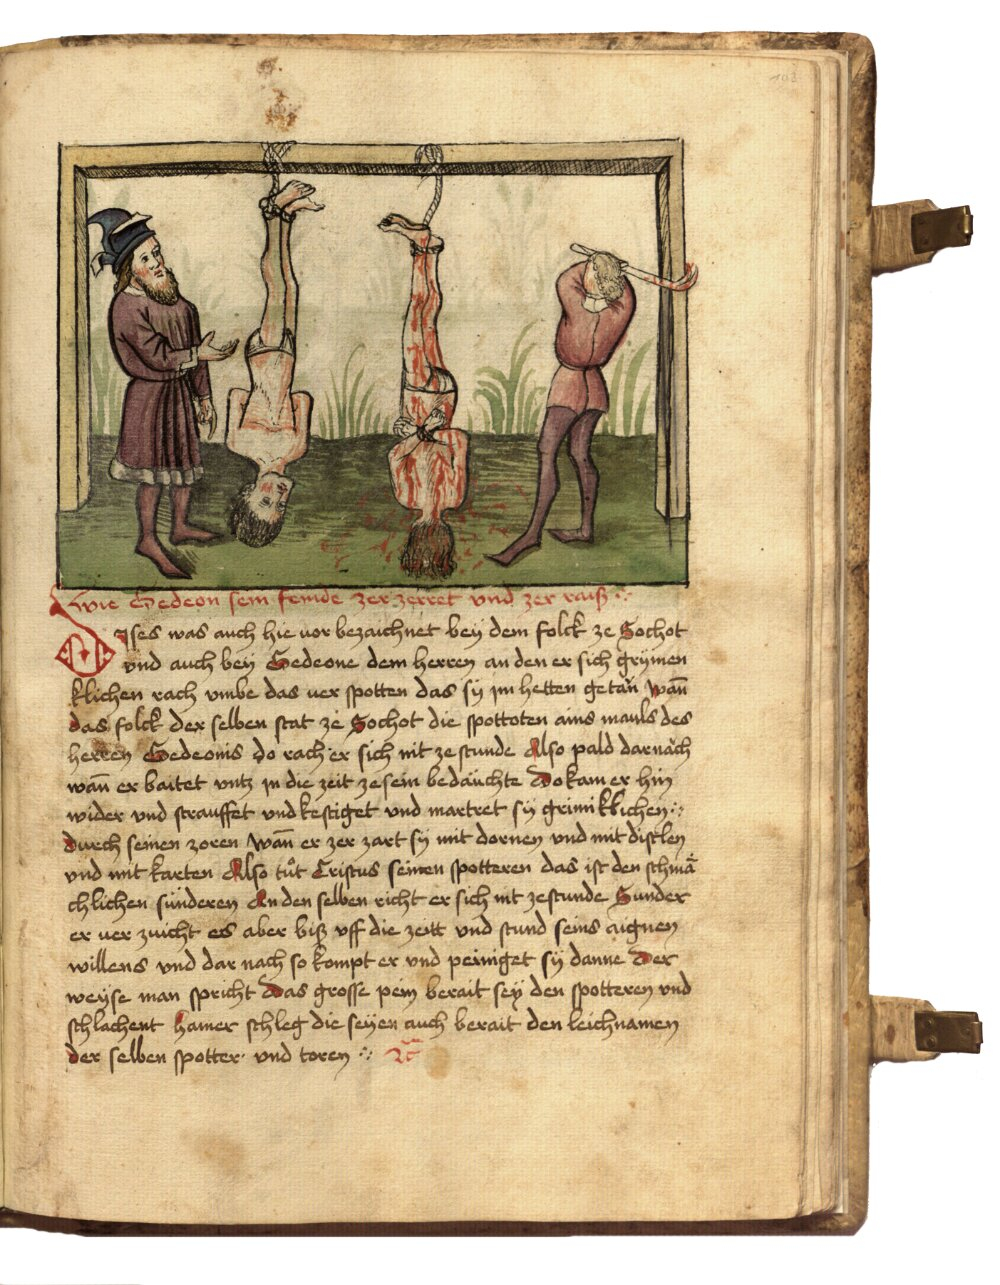 103
Wie Gedeon sein feinde zer zerret und zer raisß
Dises was auch hie vor bezaichnet bey dem folck ze Sochot
und auch bey Gedeone dem herren an den er sich grymen
klichen rach vmbe das ver spotten das sy jm hetten getän Wañ
das folck der selben stat ze Sochot die spottoten ains mauls des
herren Gedeonis do rach er sich nit ze stunde Also pald darnäch
wañ er baitet vntz jn die zeit ze sein bedäuchte Do kam er hin
wider vnd strauffet vnd kestiget vnd martret sy grimiklichen
durch seinen zoren Wañ er zer zart sy mit dornen vnd mit distlen
vnd mit karten Also tůt Cristus seinen spotteren das ist den schmä
chlichen sünderen An den selben richt er sich nit ze stunde Sunder
er ver zwicht es aber biß vff die zeitt vnd stund seins aignen
willens vnd dar nach so kompt er vnd peiniget sy danne Der
weyse man spricht Das grosse pein berait sey den spotteren vnd
schlachent hamer schleg die seyen auch berait den leichnamen
der selben spotter vnd toren